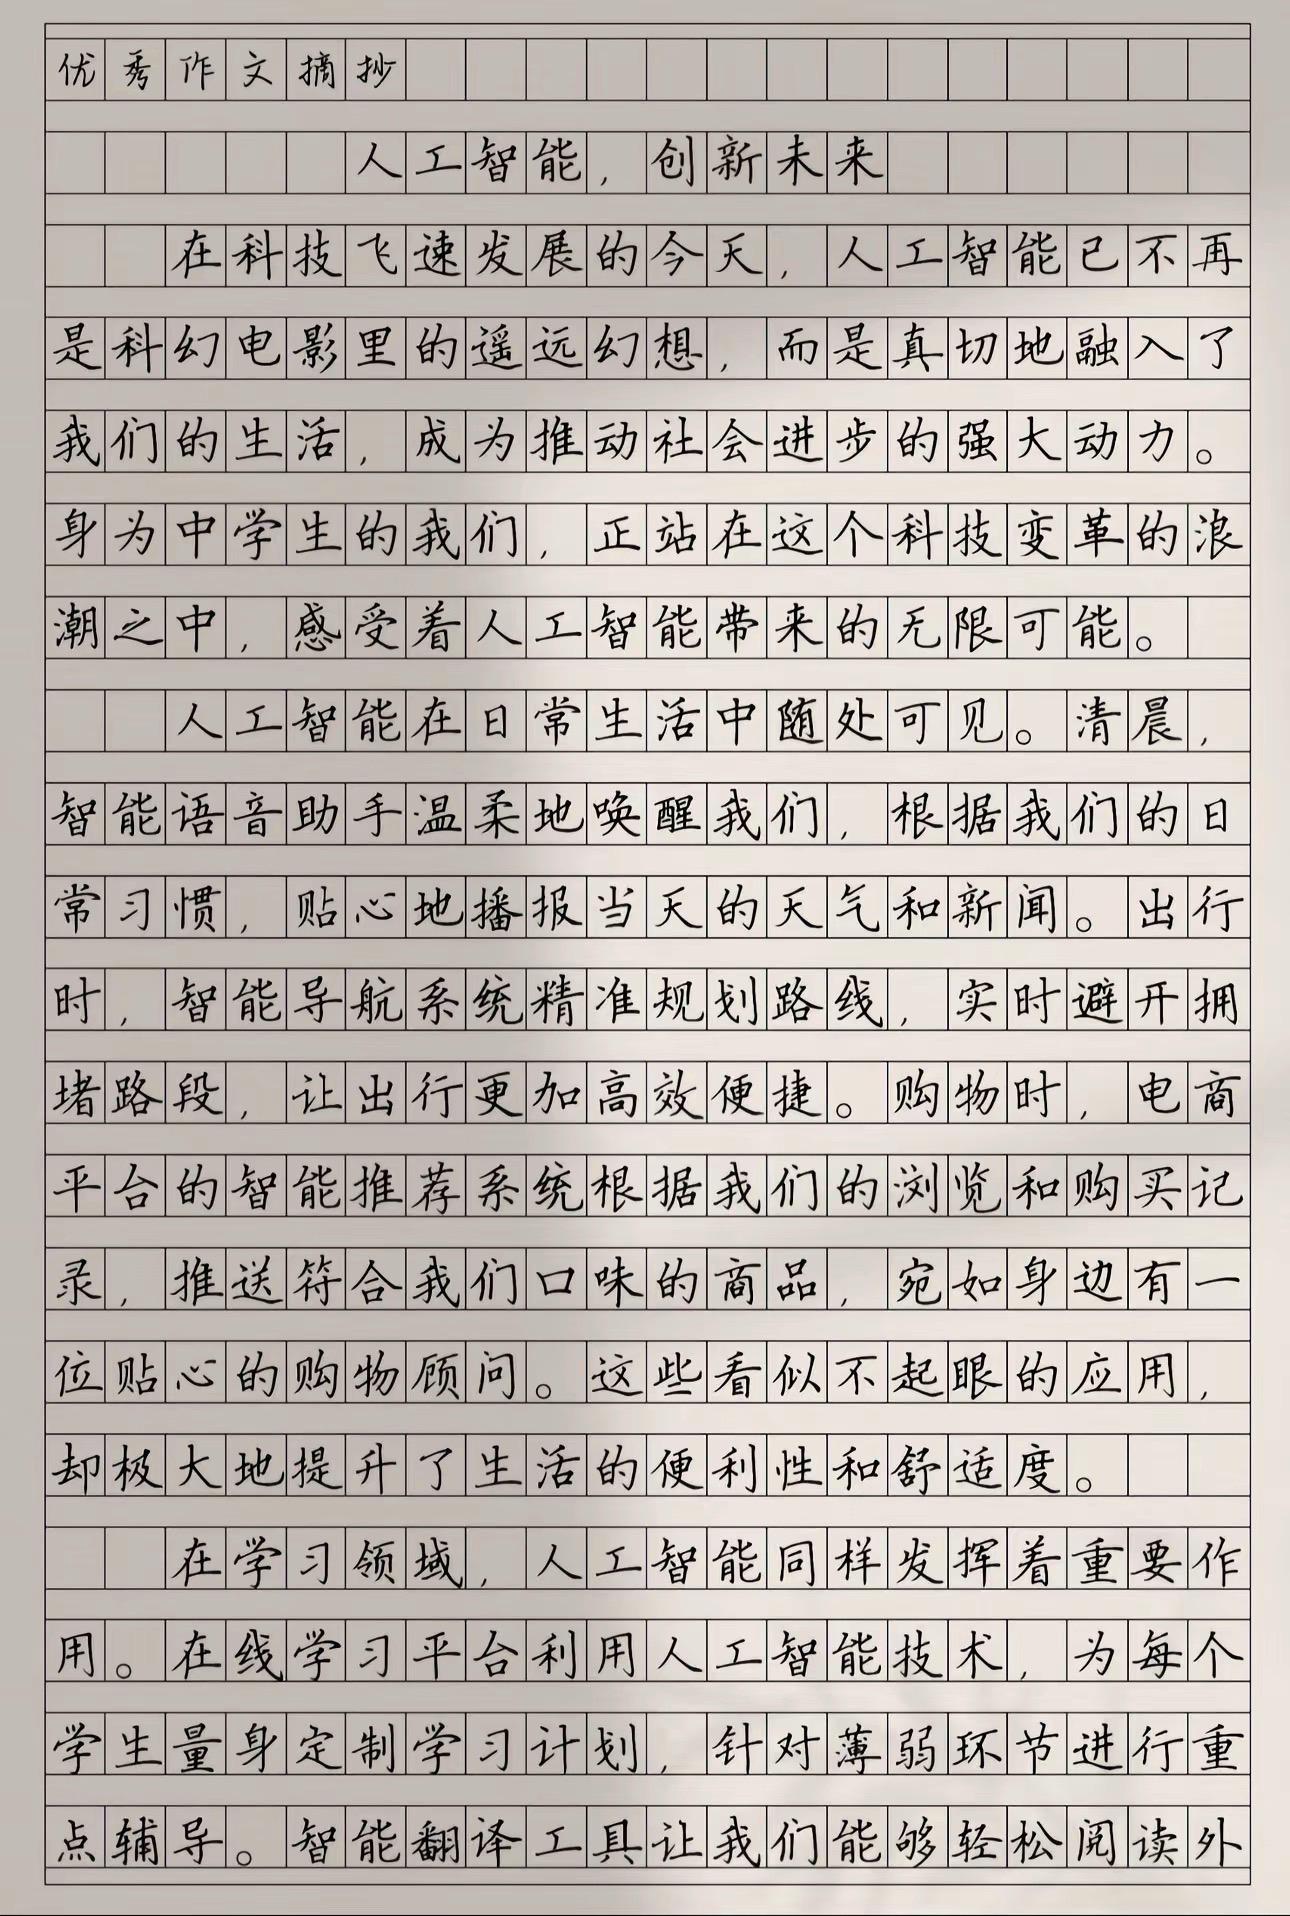 优秀作文摘抄
人工智能，创新未来
在科技飞速发展的今天，人工智能已不再
是科幻电影里的遥远幻想，而是真切地融入了
我们的生活，成为推动社会进步的强大动力。
身为中学生的我们，正站在这个科技变革的浪
潮之中，感受着人工智能带来的无限可能。
人工智能在日常生活中随处可见。清晨，
智能语音助手温柔地唤醒我们，根据我们的日
常习惯，贴心地播报当天的天气和新闻。出行
时，智能导航系统精准规划路线，实时避开拥
堵路段，让出行更加高效便捷。购物时，电商
平台的智能推荐系统根据我们的浏览和购买记
录，推送符合我们口味的商品，宛如身边有一
位贴心的购物顾问。这些看似不起眼的应用，
却极大地提升了生活的便利性和舒适度。
在学习领域，人工智能同样发挥着重要作
用。在线学习平台利用人工智能技术，为每个
学生量身定制学习计划，针对薄弱环节进行重
点辅导。智能翻译工具让我们能够轻松阅读外